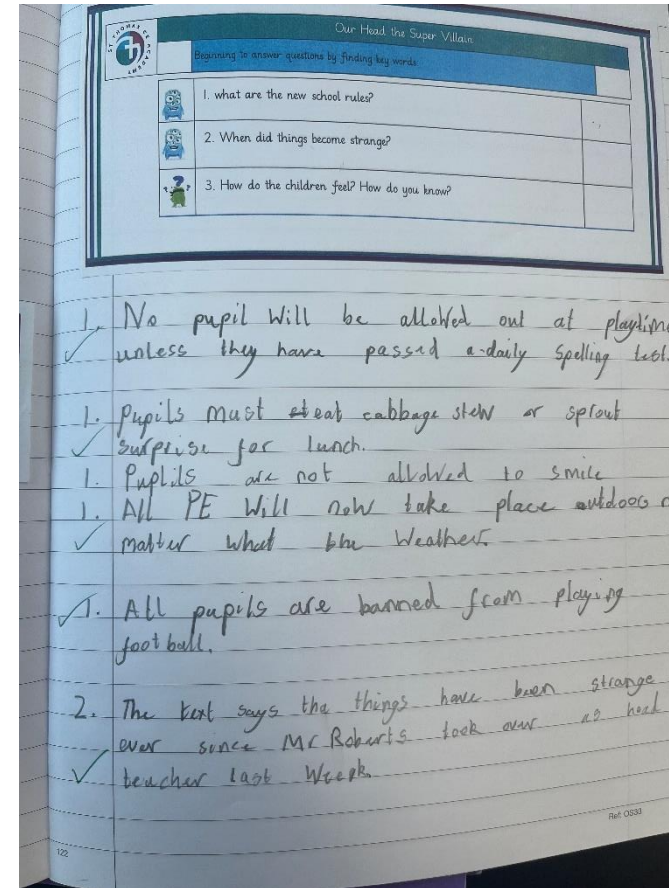 ST THOMAS CE ACADEMY
Our Head the Super Villain
Beginning to answer questions by finding key words
1. what are the new school rules?
2. When did things become strange?
3. How do the children feel? How do you know?
1. No pupil will be allowed out at playtime
unless they have passed a daily spelling test.
1. Pupils must eat cabbage stew or sprout
surprise for lunch.
1. Puplils are not allowed to smile
1. All PE will now take place outdoors
matter what the weather.
1. All pupils are banned from playing
football.
2. The text says tha things have been strange
ever since Mr Roberts took over as head
teacher last week.
Ref: OS30
122